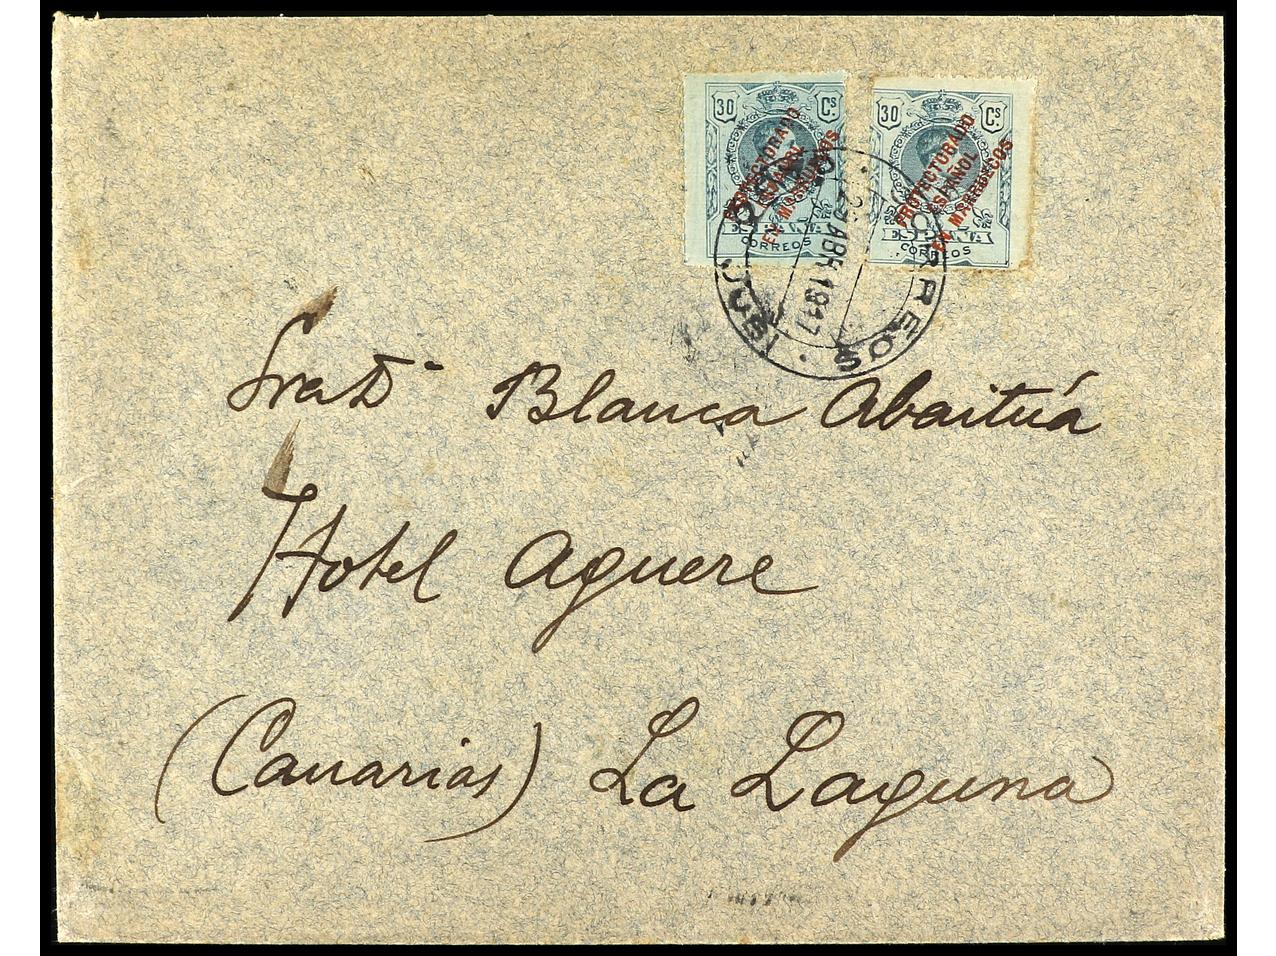 30 Cs
PROTECTORADO
ESPAÑOL
EN MARRUECOS
ESPAÑA
CORREOS
30 Cs
PROTECTORADO
ESPAÑOL
EN MARRUECOS
ESPAÑA
CORREOS
CORREOS
ABR 1917
Sra Dª Blanca Abaituá
Hotel Aguere
(Canarias) La Laguna